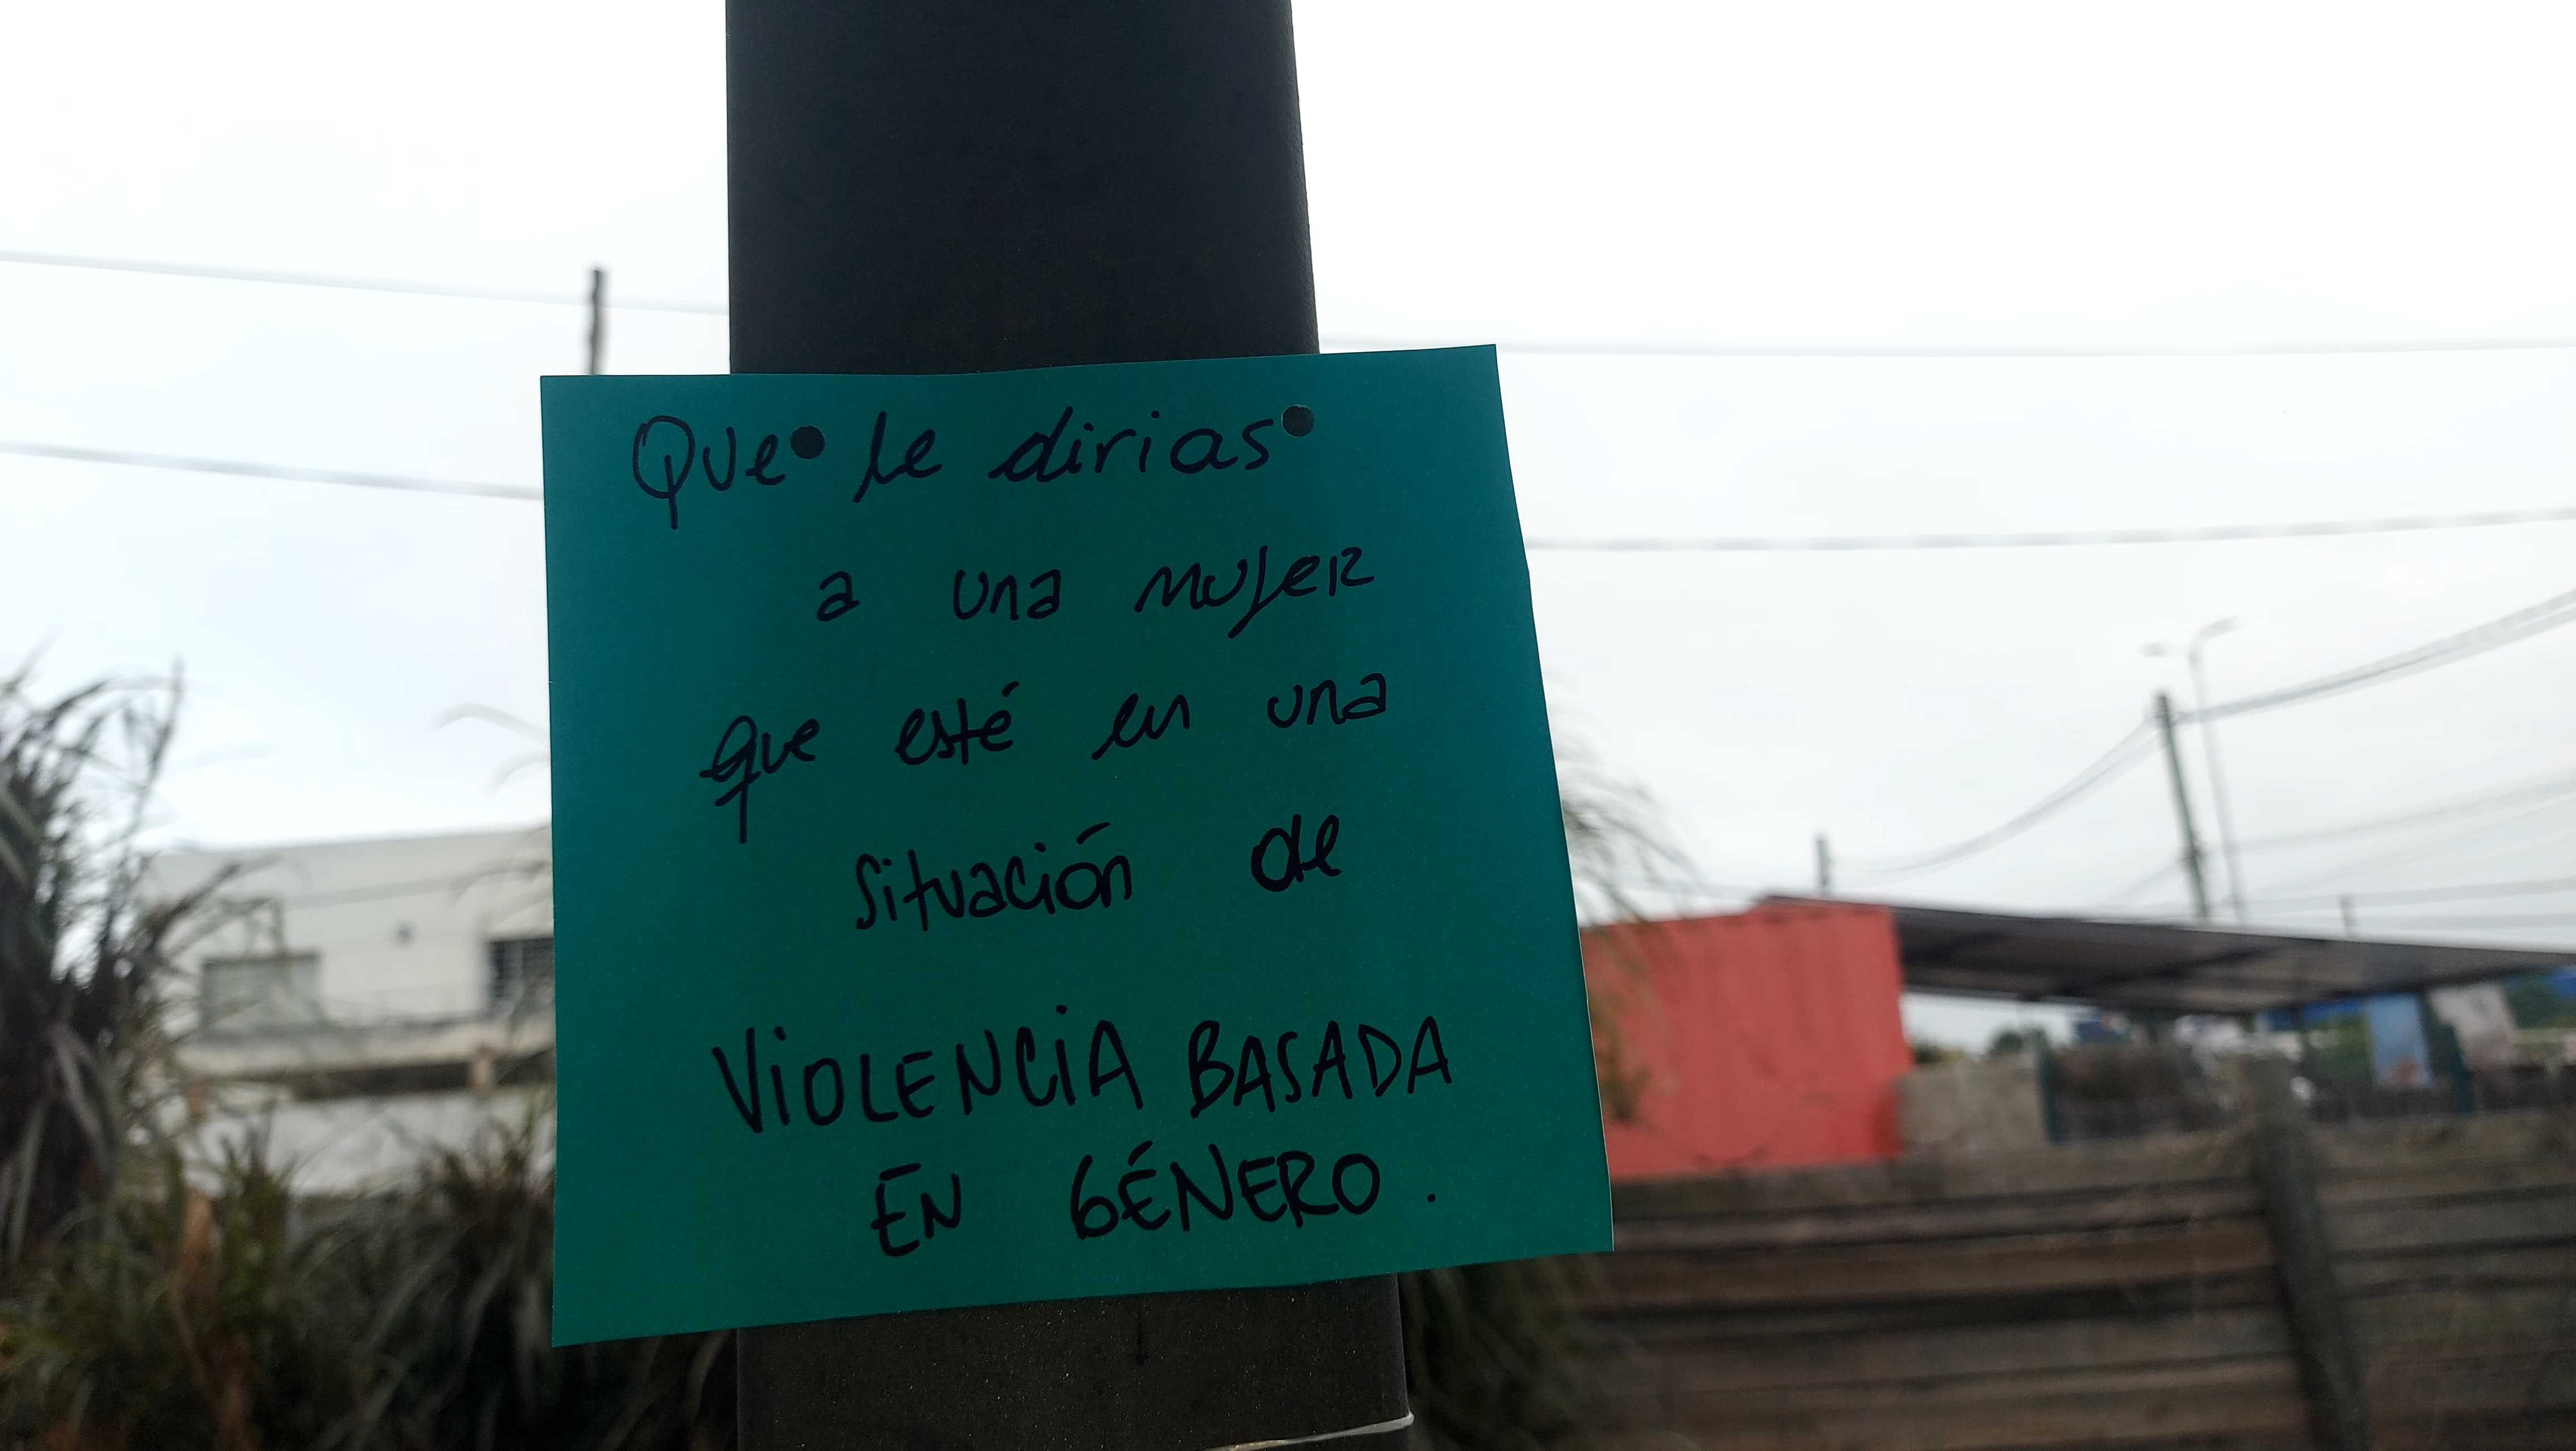 Que le dirias
a una mujer
que esté en una
situación de
VIOLENCIA BASADA
EN GÉNERO.